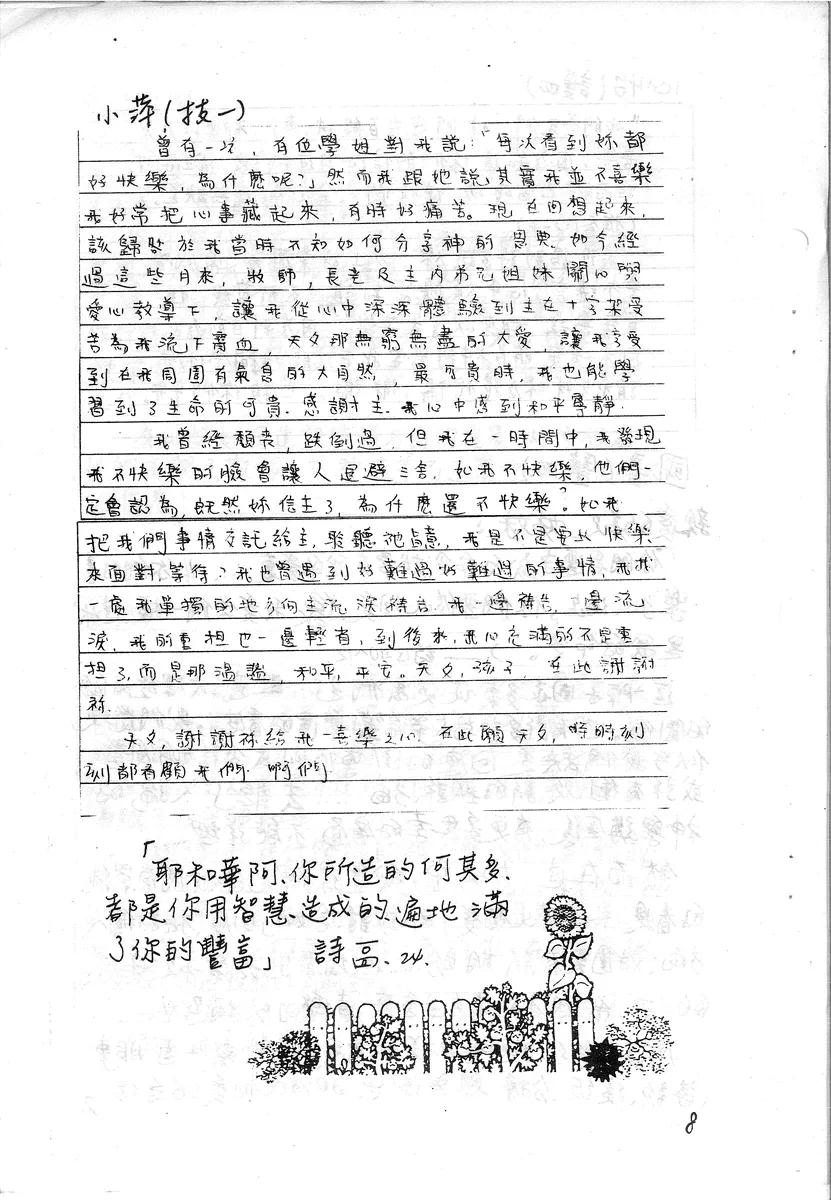 小萍(技一)
曾有一次，有位學姐對我說：「每次看到妳都
好快樂，為什麼呢?」然而我跟她說其實我並不喜樂
我好常把心事藏起來，有時好痛苦。現在回想起來，
該歸咎於我當時不知如何分享神的恩典。如今經
過這些月來，牧師，長老及主內弟兄姐妹關心與
愛心教導下，讓我從心中深深體驗到主在十字架受
苦為我流下寶血，天父那無窮無盡的大愛，讓我享受
到在我周圍有氣息的大自然，最可貴時，我也能學
習到了生命的可貴．感謝主．我心中感到和平寧靜．
我曾經頹喪，跌倒過．但我在一時間中，我發現
我不快樂的臉會讓人退避三舍．如我不快樂，他們一
定會認為，既然妳信主了，為什麼還不快樂?。如我
把我們事情交託給主，聆聽祂旨意，我是不是要以快樂
來面對，等待?我也曾遇到好難過好難過的事情，我找
一處我單獨的地方向主流淚禱告．我一邊禱告，邊流
淚，我的重担也一邊輕省，到後來，我心充滿的不是重
担了，而是那溫謐，和平，平安。天父，孩子，在此謝謝
祢．
天父，謝謝祢給我一喜樂之心．在此願天父，時時刻
刻都看顧我們．啊們．
「耶和華阿、你所造的何其多、
都是你用智慧、造成的、遍地滿
了你的豐富」 詩 一〇四、24.
8